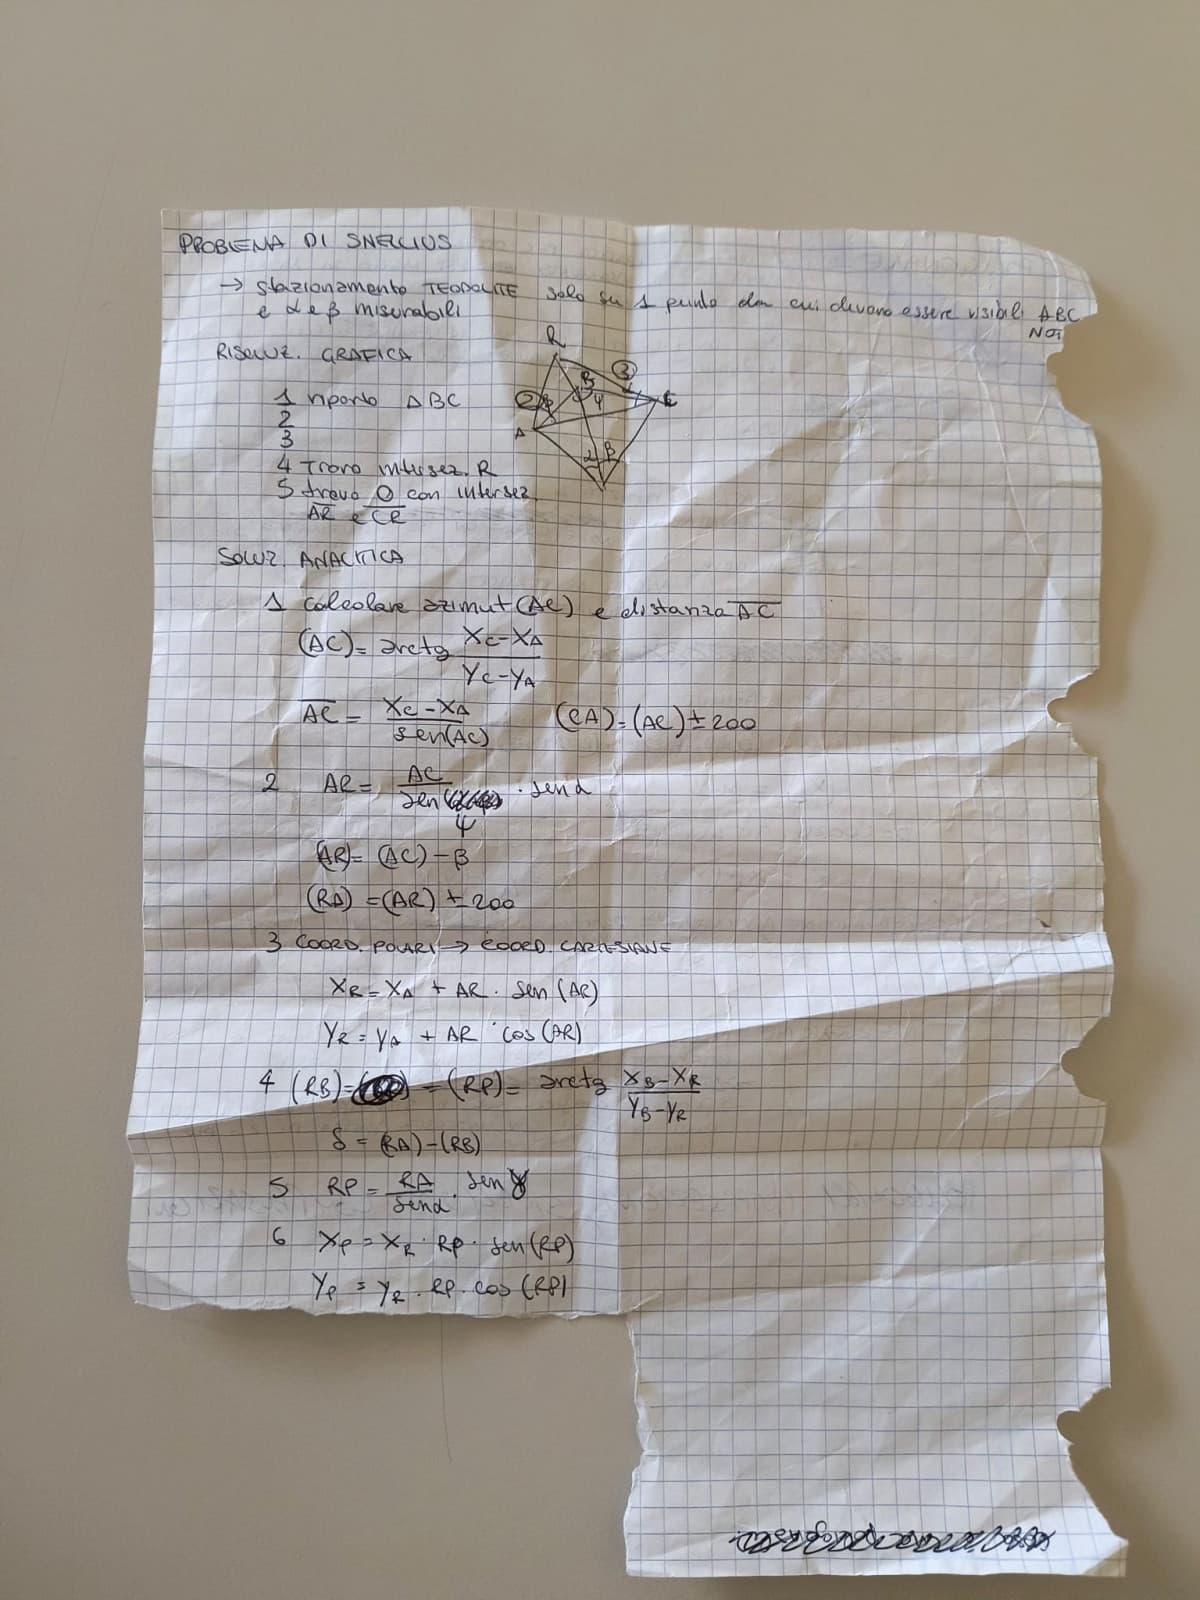 PROBLEMA DI SNELLIUS
→ stazionamento TEODOLITE solo su 1 punto da cui devono essere visibili ABC
NOTI
e α e β misurabili
RISOLUZ. GRAFICA
1 riporto ABC
2
3
4 Trovo intersez. R
5 trovo O con intersez.
AR e CR
R
B
3
α
2
β
γ
C
A
α β
SOLUZ. ANALITICA
1 calcolare azimut (AC) e distanza AC
(AC) = arctg XC-XA / YC-YA
AC = XC-XA / sen(AC) (CA) = (AC) ± 200
2 AR = AC / sen φ · sen α
(AR) = (AC) - β
(RA) = (AR) ± 200
3 COORD. POLARI → COORD. CARTESIANE
XR = XA + AR · sen (AR)
YR = YA + AR · cos (AR)
4 (RB) = = (RP) = arctg XB-XR / YB-YR
δ = (RA) - (RB)
5 RP = RA / sen α · sen
6 XP = XR · RP · sen (RP)
YP = YR · RP · cos (RP)